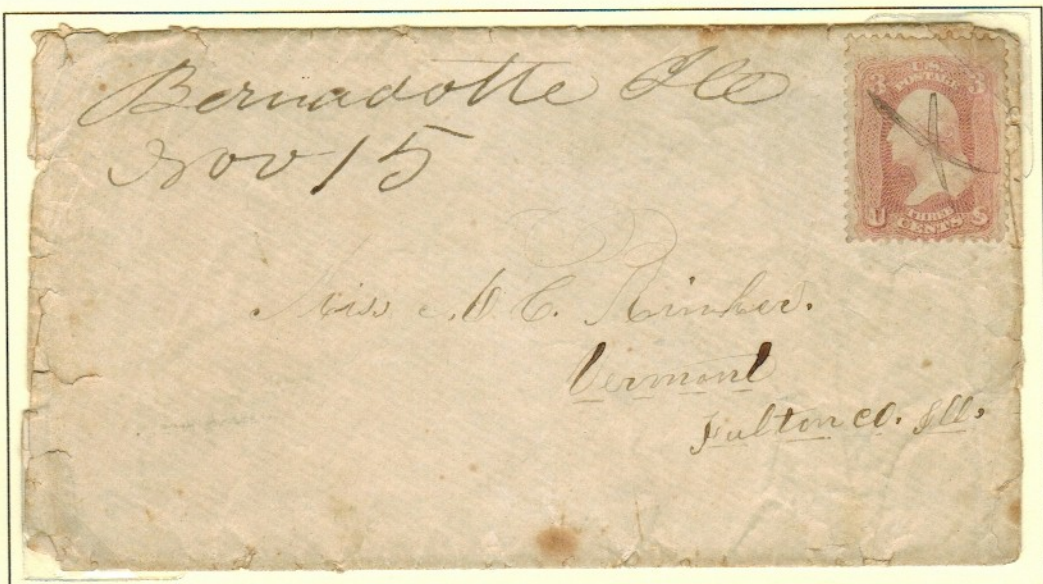 Bernadotte Ills
Nov 15
3 U.S. POSTAGE 3
U THREE CENTS S
Miss C. Rinker.
Vermont
Fulton co. Ill.